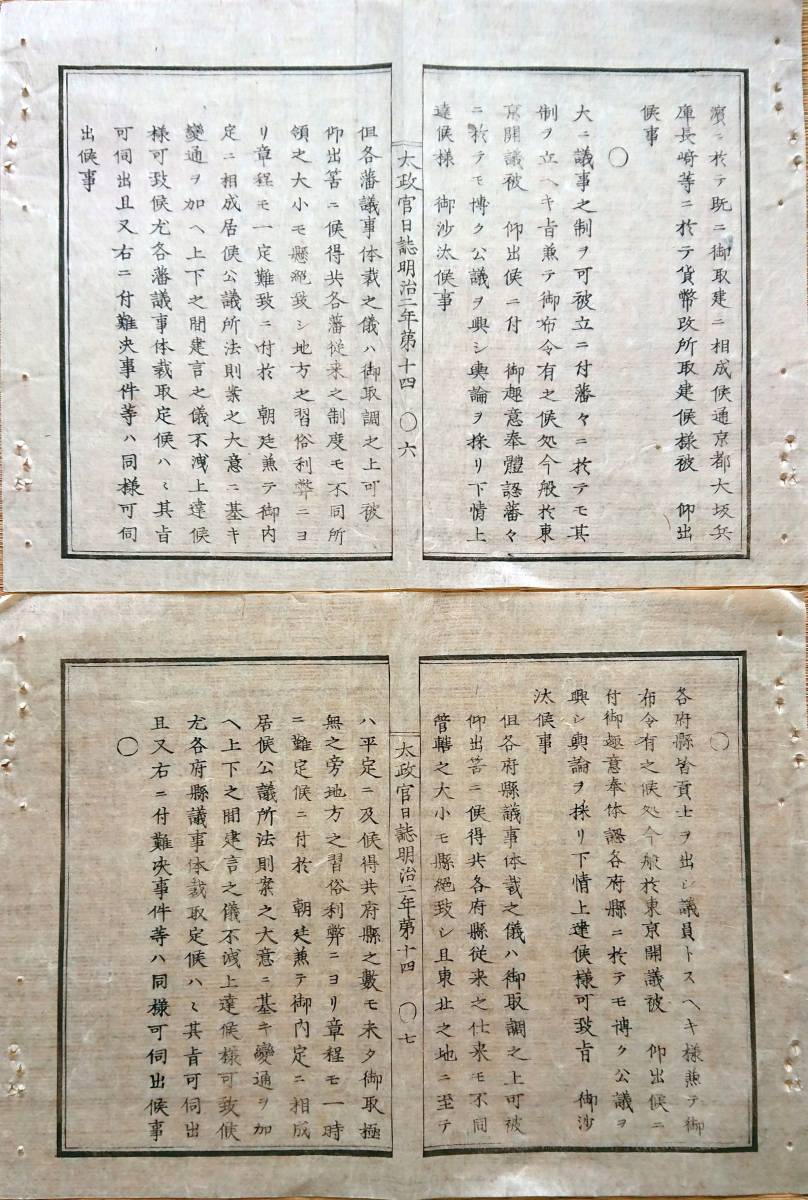 濱ニ於テ既ニ御取建ニ相成候通京都大坂兵
庫長崎等ニ於テ貨幣改所取建候様被　仰出
候事
○
大ニ議事之制ヲ可被立ニ付藩々ニ於テモ其
制ヲ立ヘキ旨兼テ御布令有之候処今般於東
京開議被　仰出候ニ付　御趣意奉體認藩々
ニ於テモ博ク公議ヲ興シ輿論ヲ採リ下情上
達候様　御沙汰候事
太政官日誌明治二年第十四　○六
但各藩議事体裁之儀ハ御取調之上可被
仰出筈ニ候得共各藩従来之制度モ不同所
領之大小モ懸絶致シ地方之習俗利弊ニヨ
リ章程モ一定難致ニ付於　朝廷兼テ御内
定ニ相成居候公議所法則案之大意ニ基キ
變通ヲ加ヘ上下之間建言之儀不洩上達候
様可致候尤各藩議事体裁取定候ハヽ其旨
可伺出且又右ニ付難決事件等ハ同様可伺
出候事
○
各府縣皆貢士ヲ出シ議員トスヘキ様兼テ御
布令有之候処今般於東京開議被　仰出候ニ
付御趣意奉体認各府縣ニ於テモ博ク公議ヲ
興シ輿論ヲ採リ下情上達候様可致旨　御沙
汰候事
但各府縣議事体裁之儀ハ御取調之上可被
仰出筈ニ候得共各府縣従来之仕来モ不同
管轄之大小モ縣絶致シ且東北之地ニ至テ
太政官日誌明治二年第十四　○七
ハ平定ニ及候得共府縣之數モ未タ御取極
無之旁地方之習俗利弊ニヨリ章程モ一時
ニ難定候ニ付於　朝廷兼テ御内定ニ相成
居候公議所法則案之大意ニ基キ變通ヲ加
ヘ上下之間建言之儀不洩上達候様可致候
尤各府縣議事体裁取定候ハヽ其旨可伺出
且又右ニ付難決事件等ハ同様可伺出候事
○